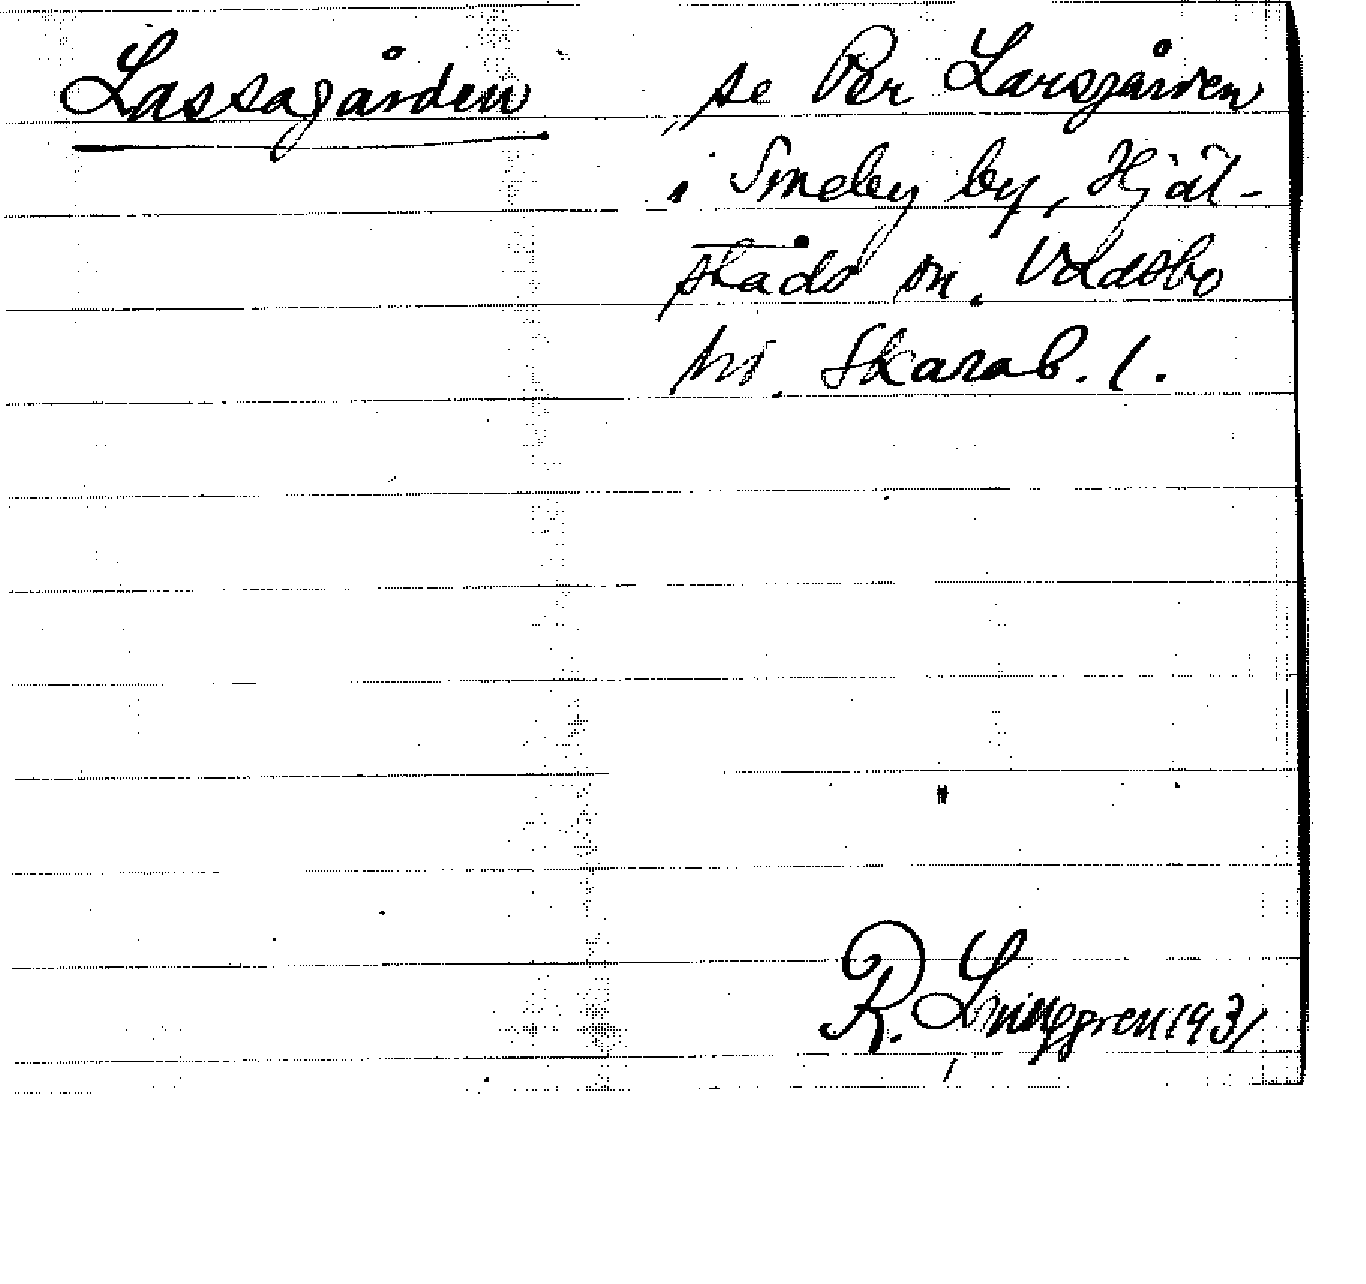 Lassagården se Per Larsgården
i Smeby by, Hjäl-
stads sn. Vadsbo
hd. Skarab. l.
R. Ljunggren 1931